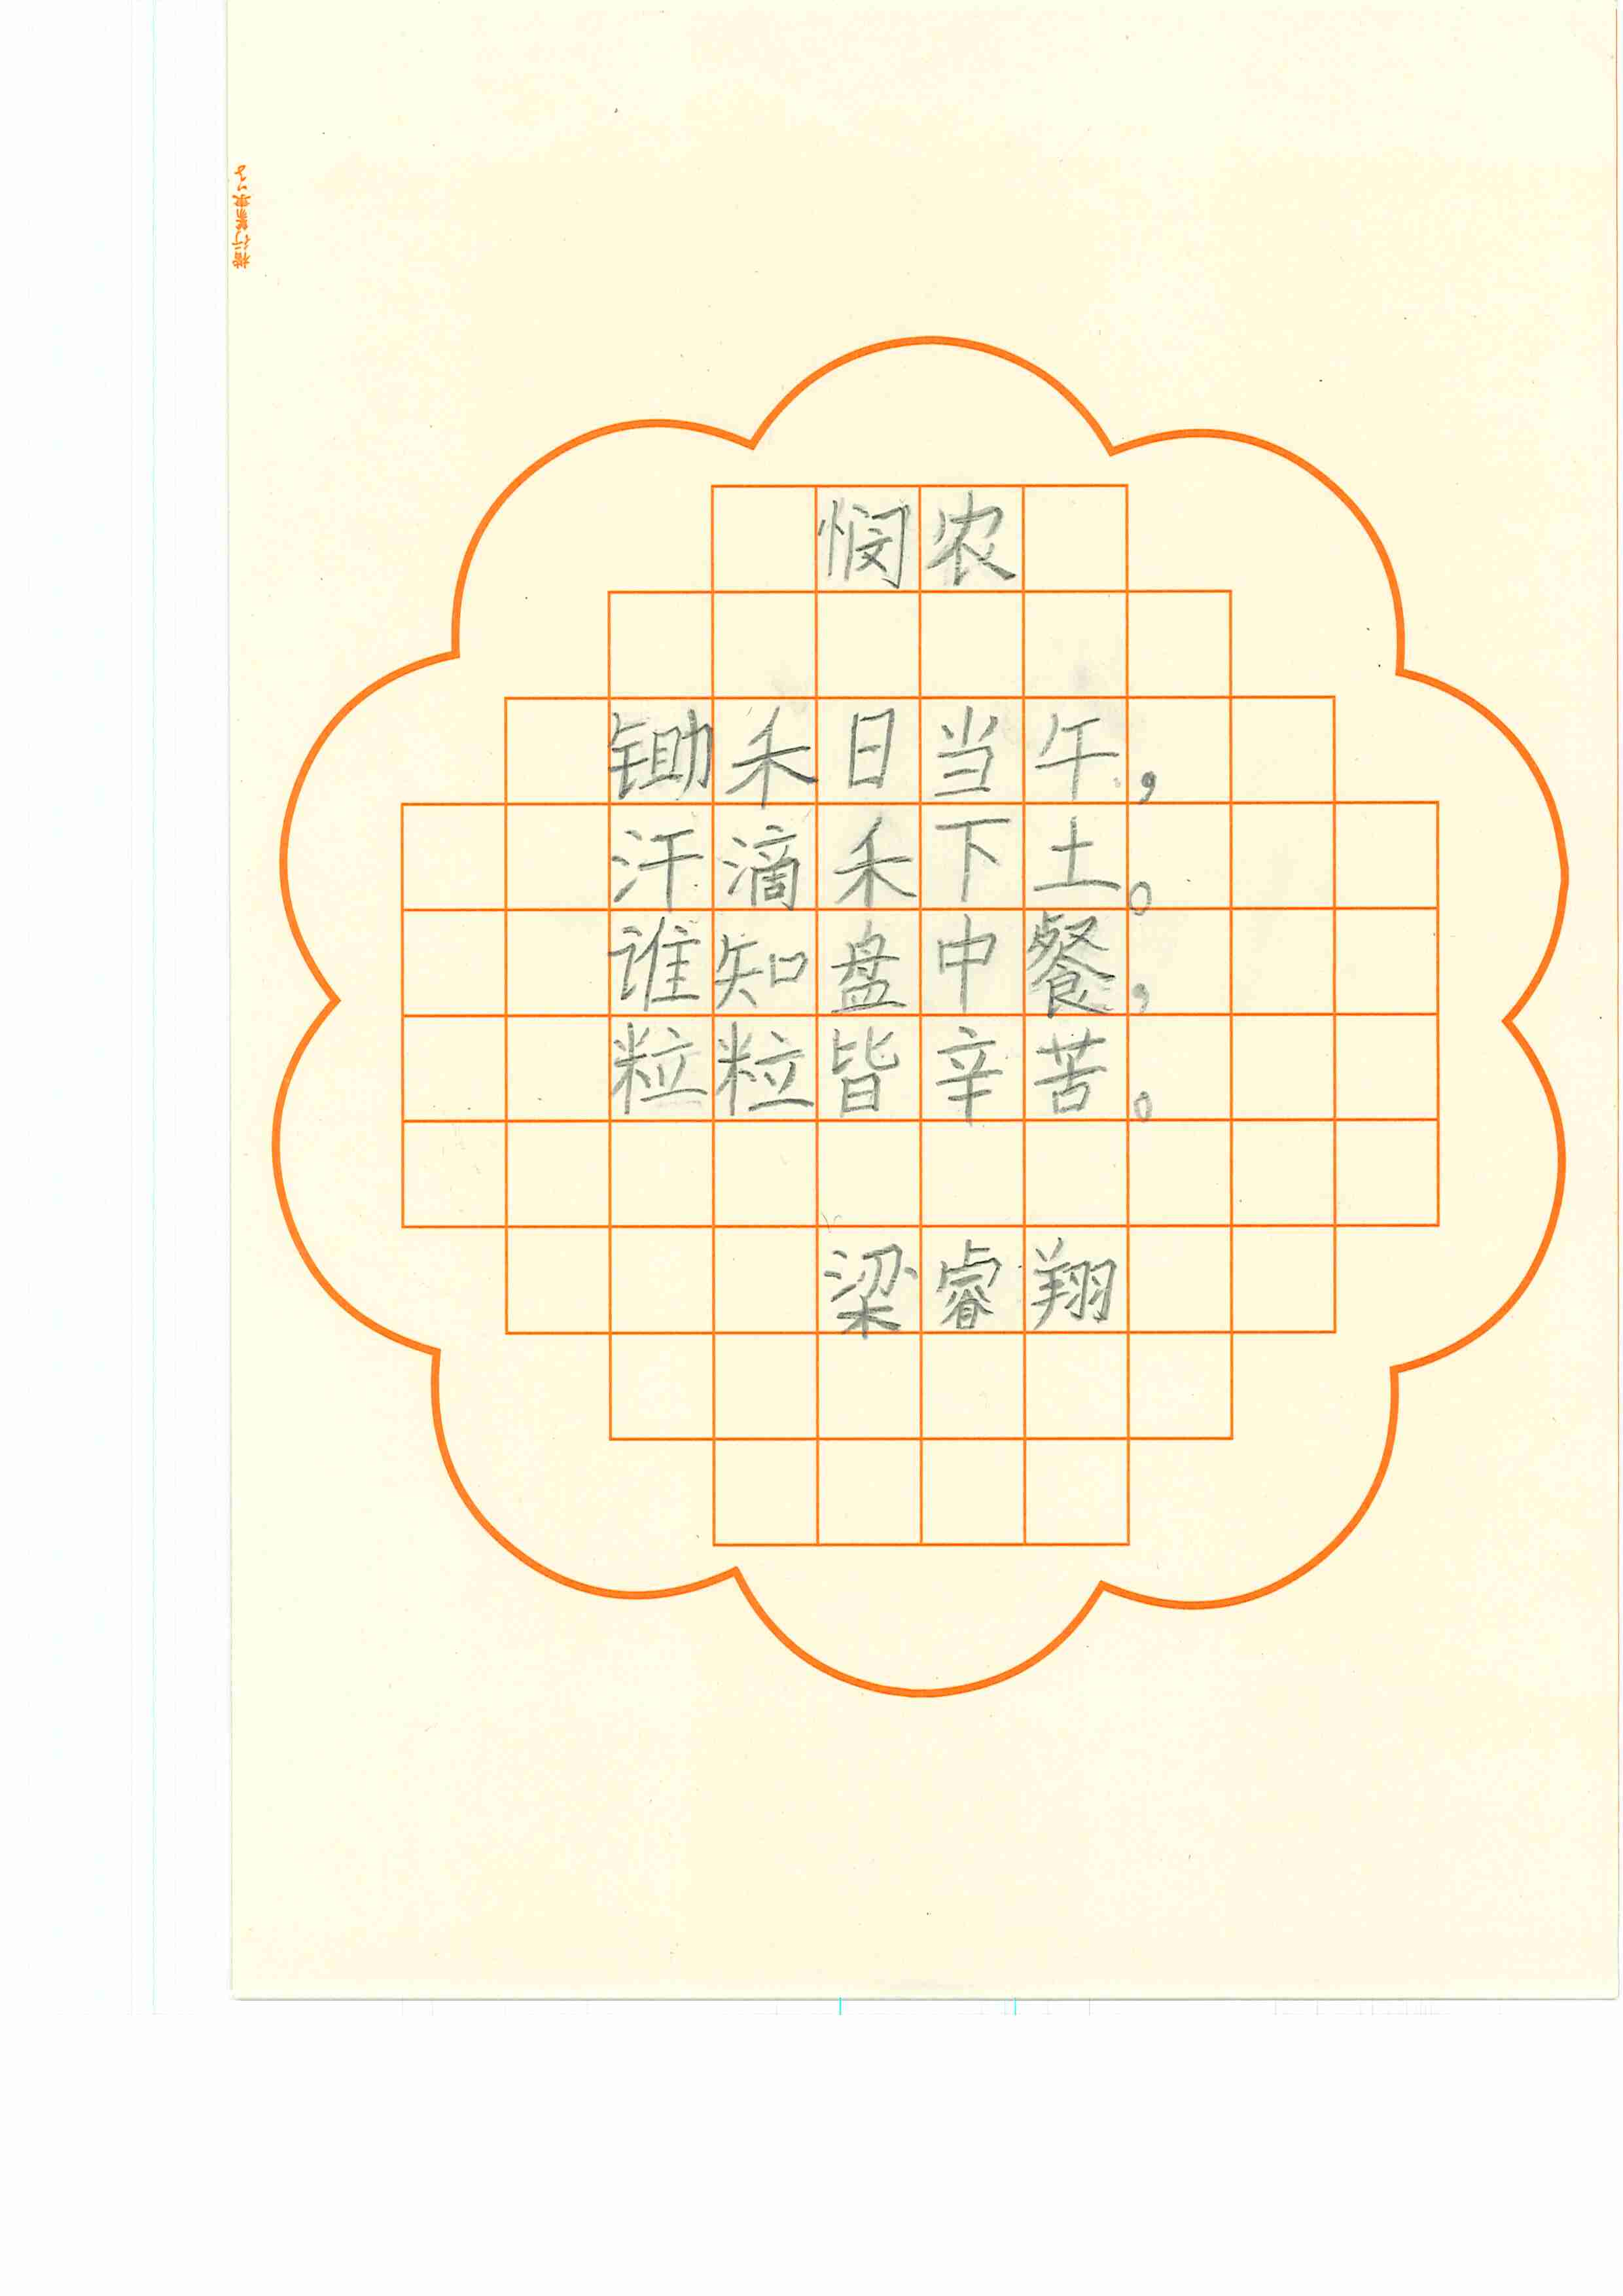 悯农
锄禾日当午，
汗滴禾下土。
谁知盘中餐，
粒粒皆辛苦。
梁睿翔